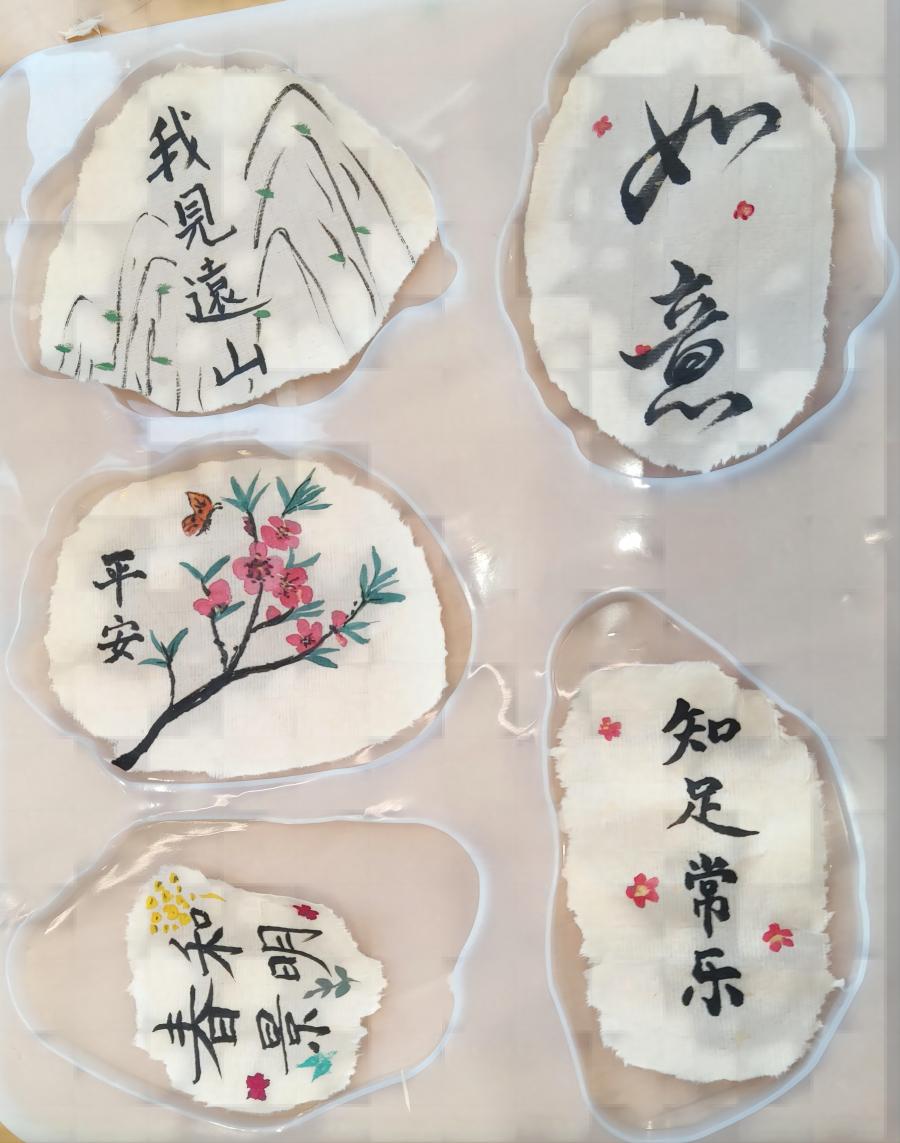 我見遠山
如意
平安
知足常乐
春和
景明